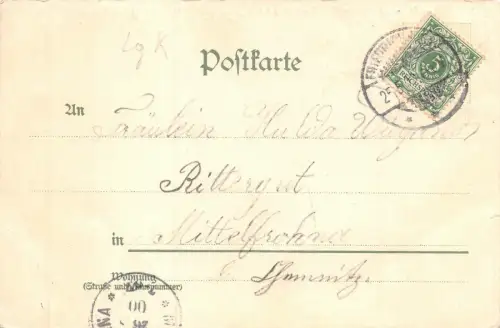 Lg K
Postkarte
An Fräulein Hulda
Rittergut
in Mittelfrohna
b. Chemnitz.
Wohnung
(Straße und Hausnummer)